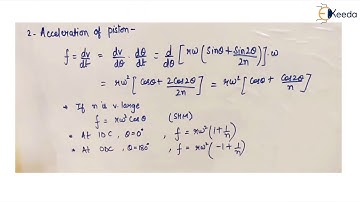 Ekeeda
2. Acceleration of piston -
f = dv/dt = dv/dθ · dθ/dt = d/dθ [rω (sinθ + sin2θ/2n)] · ω
= rω² [cosθ + 2cos2θ/2n] = rω² [cosθ + cos2θ/n]
* If n is v. large
f = rω² cosθ (SHM)
* At IDC, θ = 0°, f = rω² (1 + 1/n)
* At ODC, θ = 180°, f = rω² (-1 + 1/n)